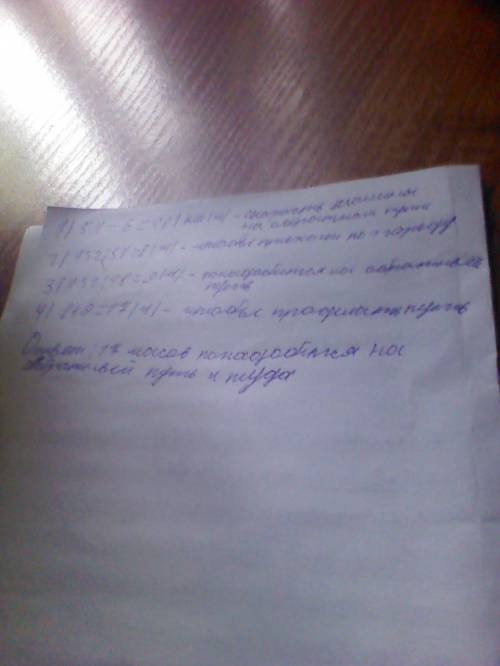 1) 54-6=48 (км/ч) - скорость машины
на обратном пути
2) 432:54=8 (ч) - чтобы приехать по городу
3) 432:48=9 (ч) - понадобится на обратный
путь
4) 8+9=17 (ч) - чтобы проделать путь
Ответ: 17 часов понадобится на
обратный путь и туда